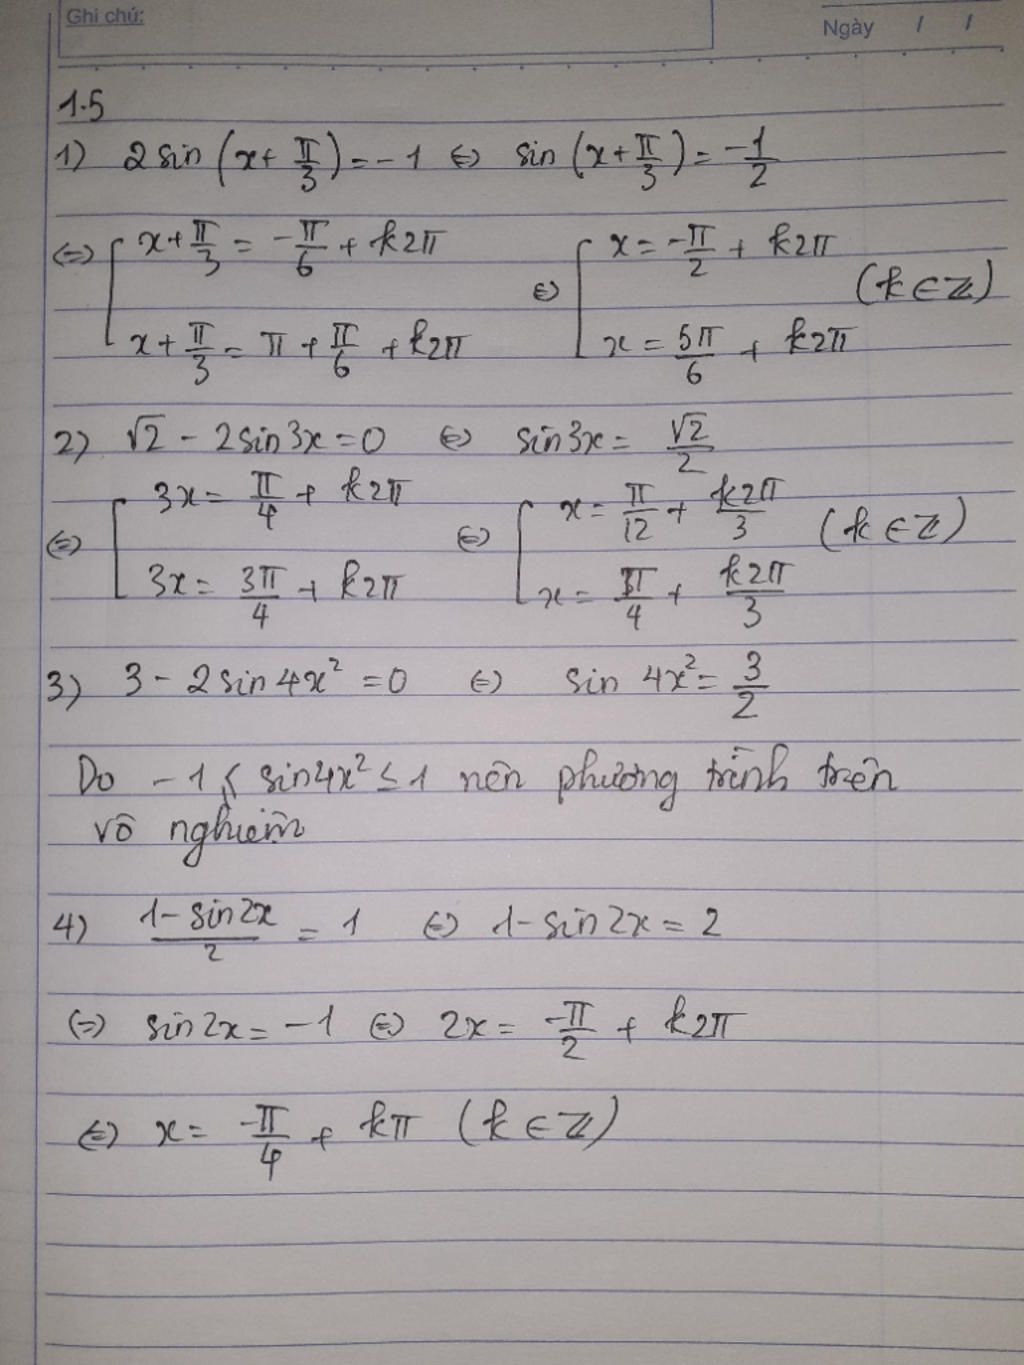 Ghi chú:
Ngày / /
1.5
1) 2sin(x+π/3)=-1 ⇔ sin(x+π/3)=-1/2
⇔ [ x+π/3 = -π/6 + k2π ⇔ [ x = -π/2 + k2π (k∈ℤ)
x+π/3 = π + π/6 + k2π x = 5π/6 + k2π
2) √2 - 2sin3x = 0 ⇔ sin3x = √2/2
⇔ [ 3x = π/4 + k2π ⇔ [ x = π/12 + k2π/3 (k∈ℤ)
3x = 3π/4 + k2π x = π/4 + k2π/3
3) 3 - 2sin4x² = 0 ⇔ sin 4x² = 3/2
Do -1 ≤ sin4x² ≤ 1 nên phương trình trên
vô nghiệm
4) (1-sin2x)/2 = 1 ⇔ 1-sin2x = 2
⇔ sin2x = -1 ⇔ 2x = -π/2 + k2π
⇔ x = -π/4 + kπ (k∈ℤ)